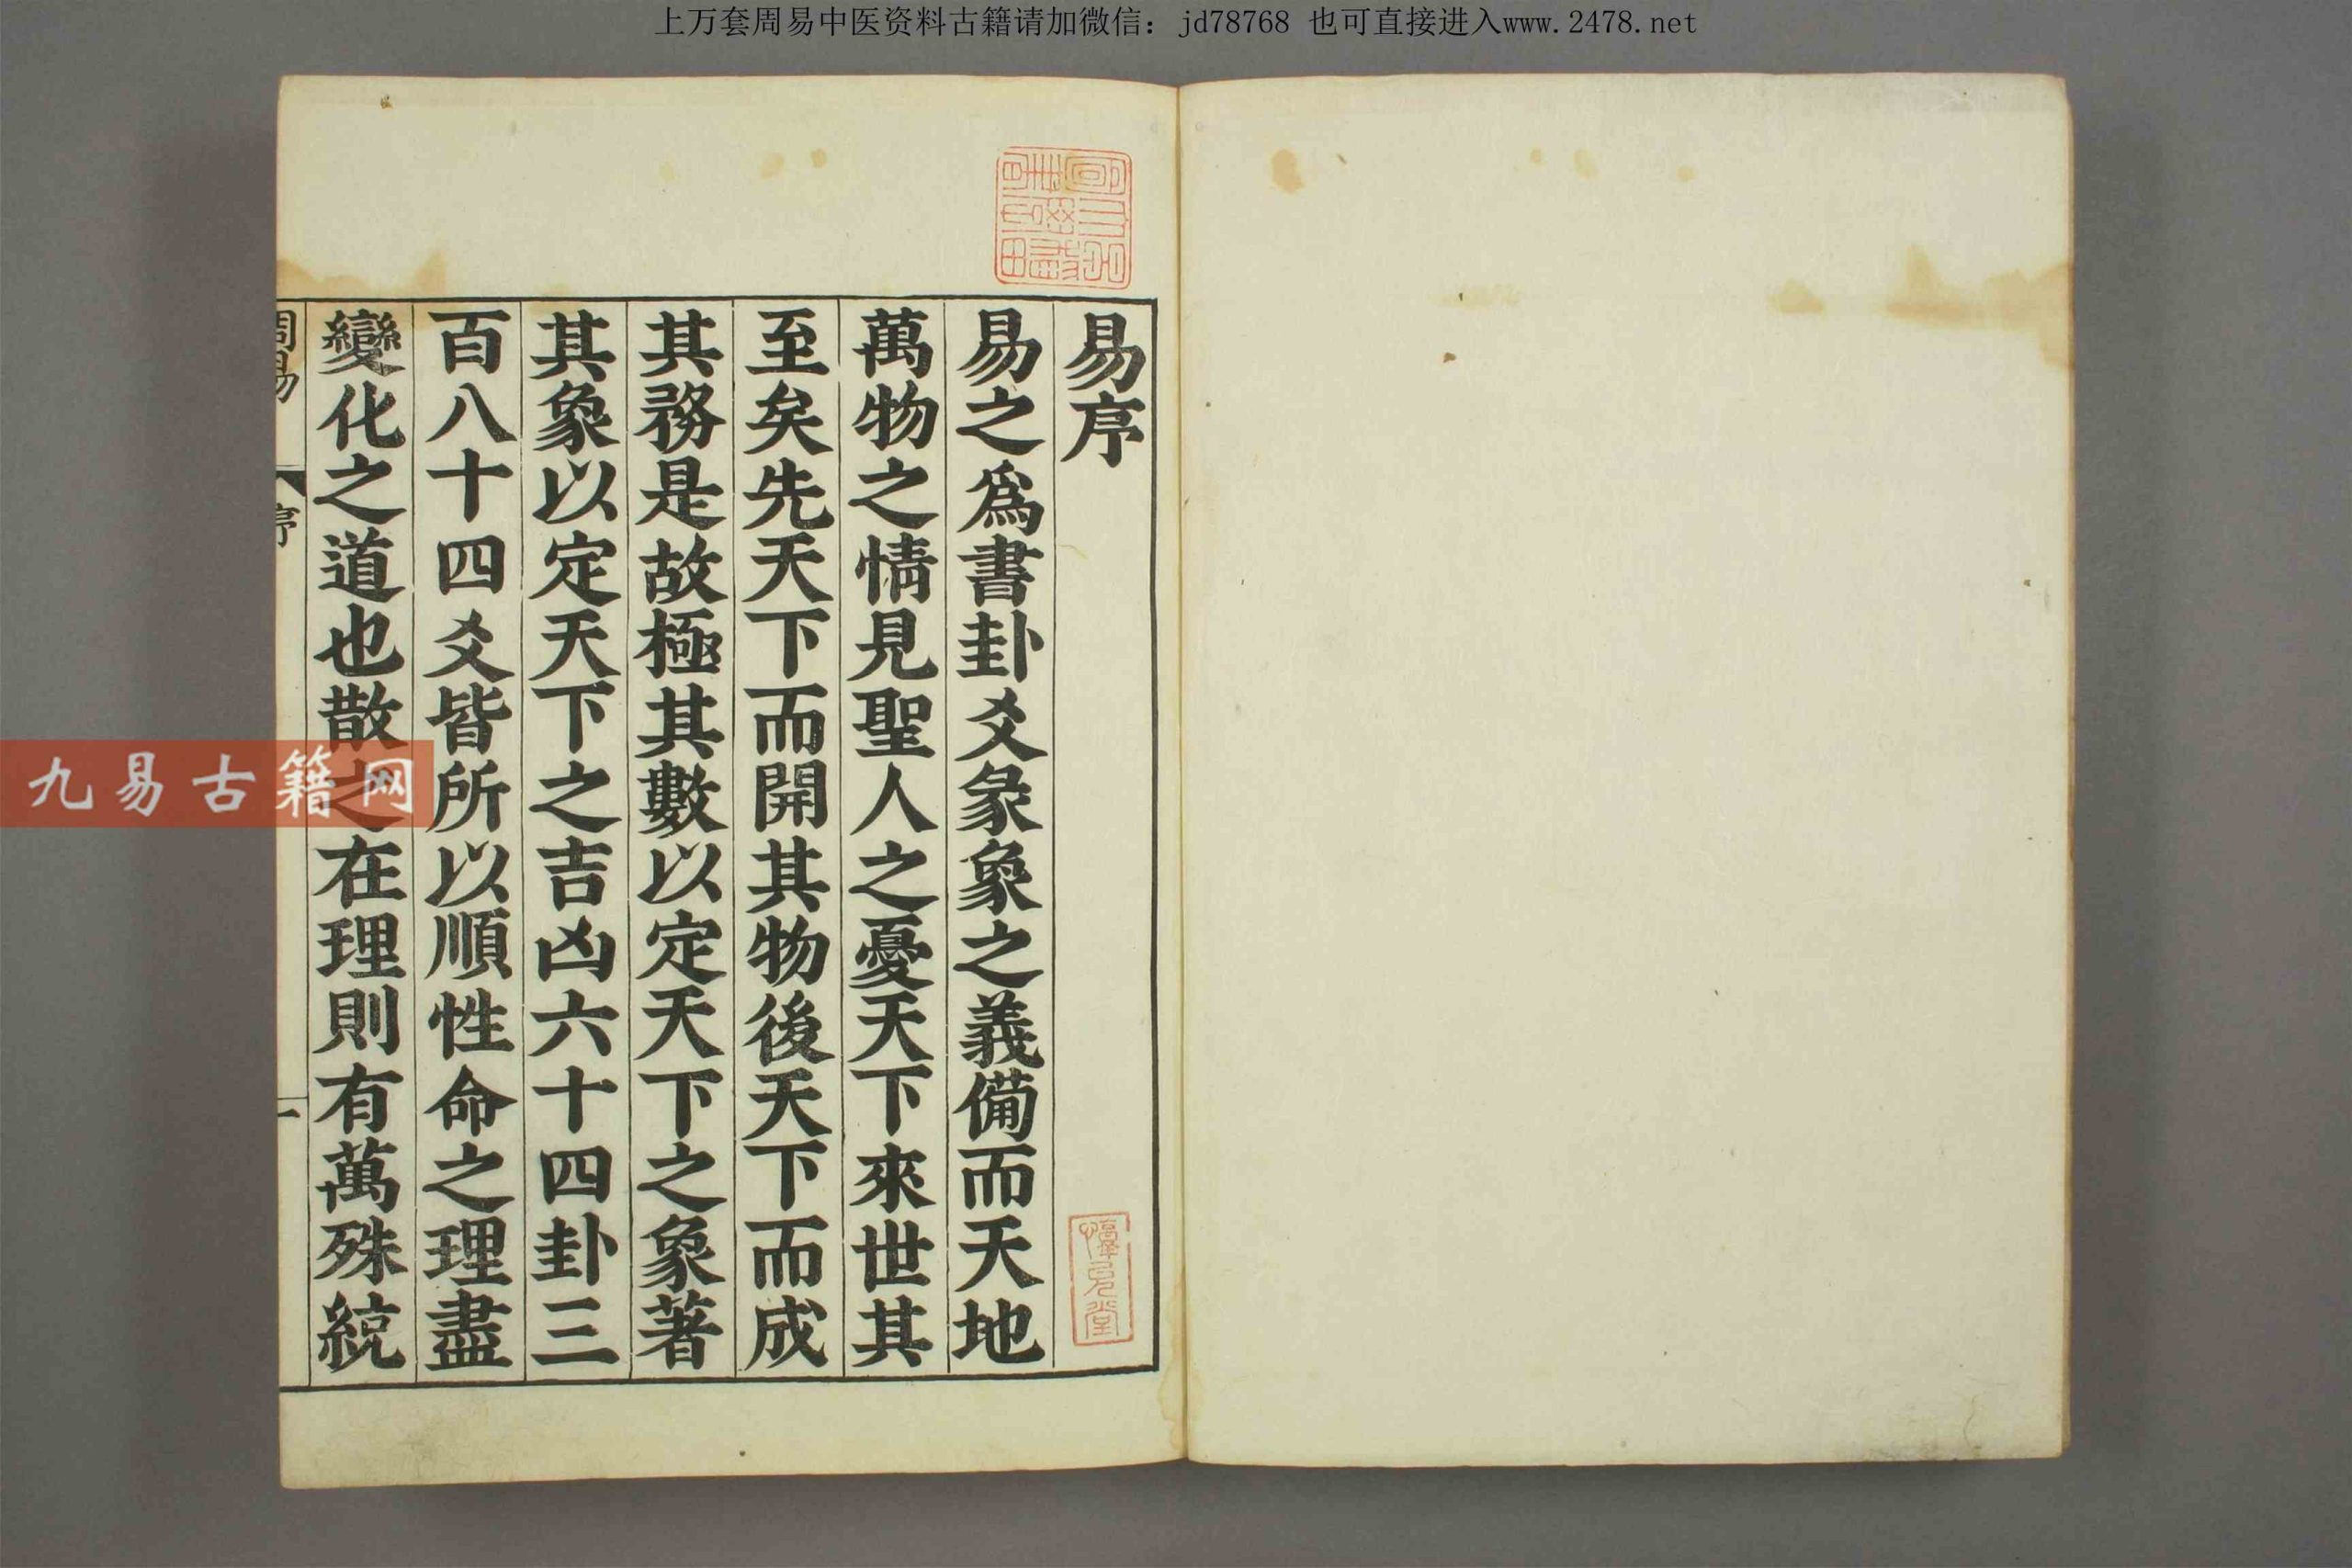 上万套周易中医资料古籍请加微信：jd78768 也可直接进入www.2478.net
易序
易之為書卦爻彖象之義備而天地
萬物之情見聖人之憂天下來世其
至矣先天下而開其物後天下而成
其務是故極其數以定天下之象著
其象以定天下之吉凶六十四卦三
百八十四爻皆所以順性命之理盡
變化之道也散之在理則有萬殊統
周易
序
一
九易古籍网